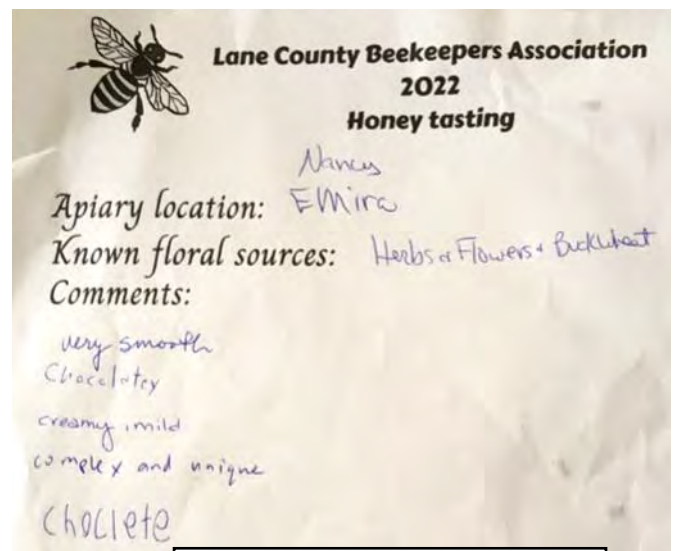 Lane County Beekeepers Association
2022
Honey tasting
Nancy
Apiary location: Elmira
Known floral sources: Herbs & Flowers & Buckwheat
Comments:
very smooth
Chocolatey
creamy, mild
complex and unique
Choclete